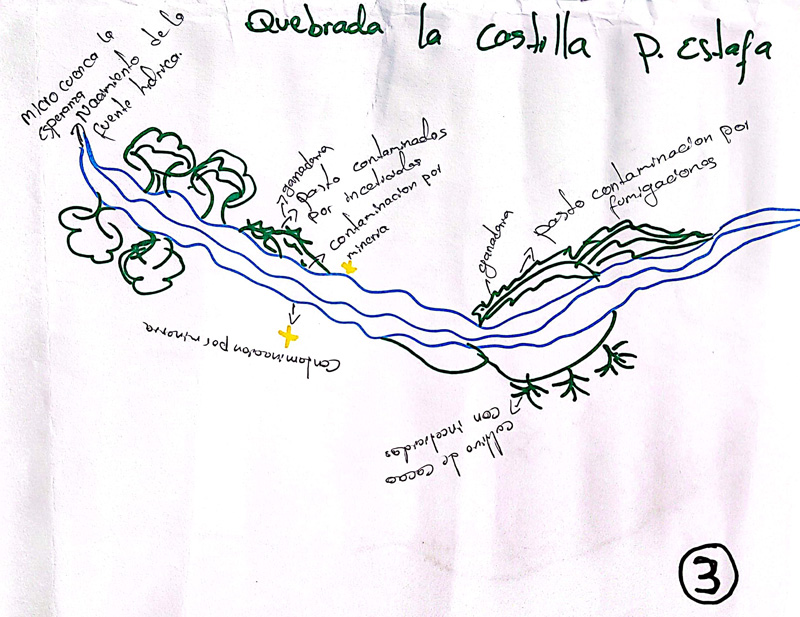 Quebrada la Castilla P. Estafa
Micro cuenca la
esperanza
Nacimiento de la
fuente hidrica.
ganaderia
pasto contaminados
por inceticidas
contaminacion por
mineria
Contaminacion por mineria
ganaderia
pasto contaminacion por
fumigaciones
cultivo de cacao
con inceticidas
3